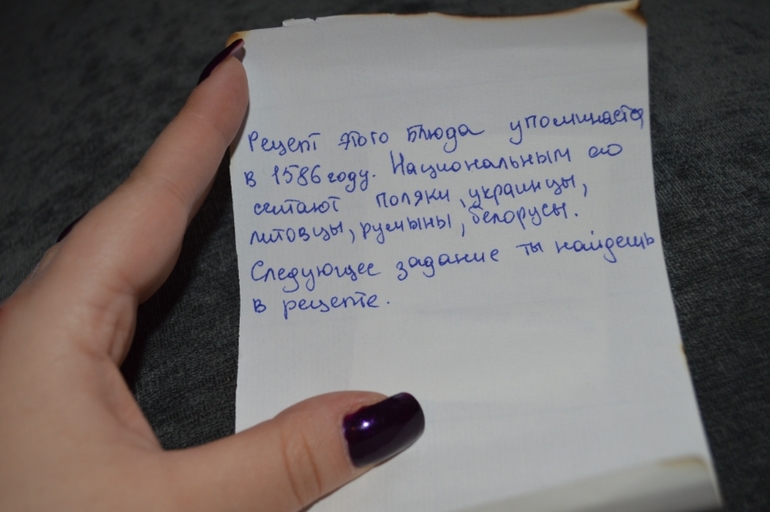 Рецепт этого блюда упоминается
в 1586 году. Национальным его
считают поляки, украинцы,
литовцы, румыны, белорусы.
Следующее задание ты найдешь
в рецепте.